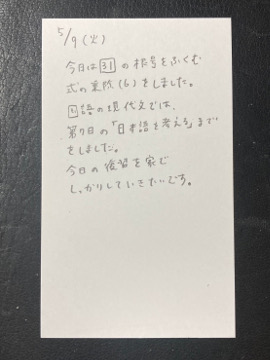 5/9(火)
今日は31の根号をふくむ
式の乗除(6)をしました。
国語の現代文では、
第7回の「日本語を考える」まで
をしました。
今日の復習を家で
しっかりしていきたいです。